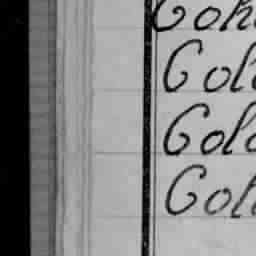 Goh
Gol
Gold
Gol